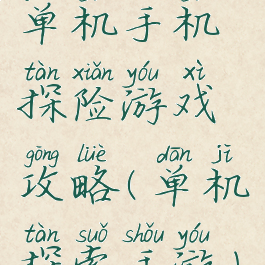 单机手机
tàn xiǎn yóu xì
探险游戏
gōng lüè dān jī
攻略(单机
tàn suǒ shǒu yóu
探索手游)